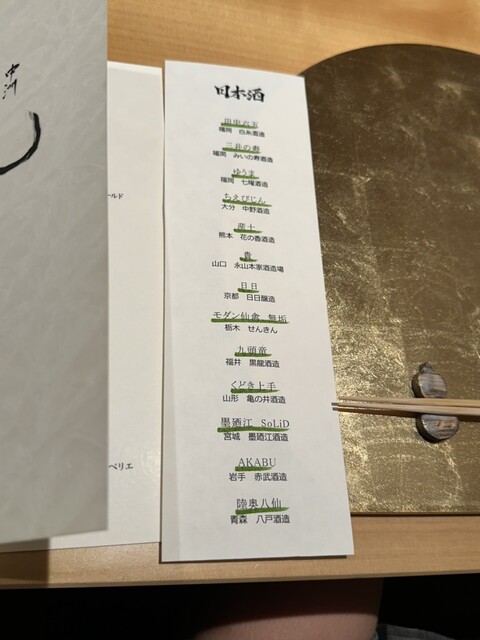 中洲
ールド
ペリエ
日本酒
田中六五
福岡 白糸酒造
三井の寿
福岡 みいの寿酒造
ゆうま
福岡 七曜酒造
ちえびじん
大分 中野酒造
産土
熊本 花の香酒造
貴
山口 永山本家酒造場
日日
京都 日日醸造
モダン仙禽 無垢
栃木 せんきん
九頭竜
福井 黒龍酒造
くどき上手
山形 亀の井酒造
墨廼江 SoLiD
宮城 墨廼江酒造
AKABU
岩手 赤武酒造
陸奥八仙
青森 八戸酒造